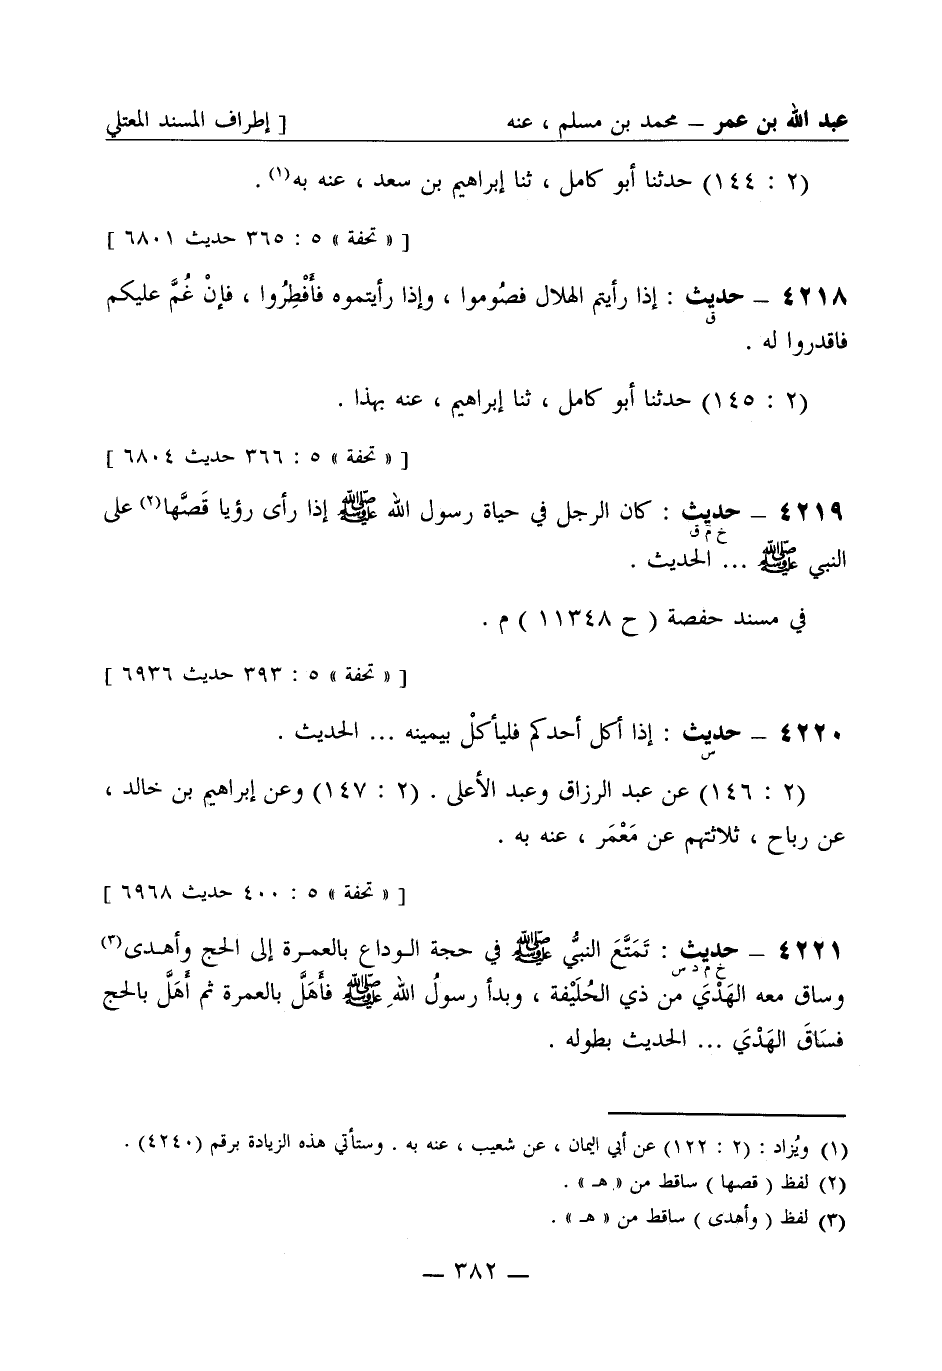 عبد الله بن عمر – محمد بن مسلم ، عنه [ إطراف المسند المعتلي
(٢ : ١٤٤) حدثنا أبو كامل ، ثنا إبراهيم بن سعد ، عنه به(١) .
[ « تحفة » ٥ : ٣٦٥ حديث ٦٨٠١ ]
٤٢١٨ – حديث : إذا رأيتم الهلال فصُوموا ، وإذا رأيتموه فأَفْطِرُوا ، فإنْ غُمَّ عليكم
ق
فاقدروا له .
(٢ : ١٤٥) حدثنا أبو كامل ، ثنا إبراهيم ، عنه بهذا .
[ « تحفة » ٥ : ٣٦٦ حديث ٦٨٠٤ ]
٤٢١٩ – حديث : كان الرجل في حياة رسول الله ﷺ إذا رأى رؤيا قَصَّها(٢) على
خ م ق
النبي ﷺ ... الحديث .
في مسند حفصة ( ح ١١٣٤٨ ) م .
[ « تحفة » ٥ : ٣٩٣ حديث ٦٩٣٦ ]
٤٢٢٠ – حديث : إذا أكل أحدكم فليأكلْ بيمينه ... الحديث .
س
(٢ : ١٤٦) عن عبد الرزاق وعبد الأعلى . (٢ : ١٤٧) وعن إبراهيم بن خالد ،
عن رباح ، ثلاثتهم عن مَعْمَر ، عنه به .
[ « تحفة » ٥ : ٤٠٠ حديث ٦٩٦٨ ]
٤٢٢١ – حديث : تَمَتَّعَ النبيُّ ﷺ في حجة الوداع بالعمرة إلى الحج وأهدى(٣)
خ م د س
وساق معه الهَدْيَ من ذي الحُلَيْفة ، وبدأ رسولُ اللهِ ﷺ فأَهَلَّ بالعمرة ثم أَهَلَّ بالحج
فسَاقَ الهَدْيَ ... الحديث بطوله .
(١) ويُزاد : (٢ : ١٢٢) عن أبي اليمان ، عن شعيب ، عنه به . وستأتي هذه الزيادة برقم (٤٢٤٠) .
(٢) لفظ ( قصها ) ساقط من « هـ » .
(٣) لفظ ( وأهدى ) ساقط من « هـ » .
— ٣٨٢ —